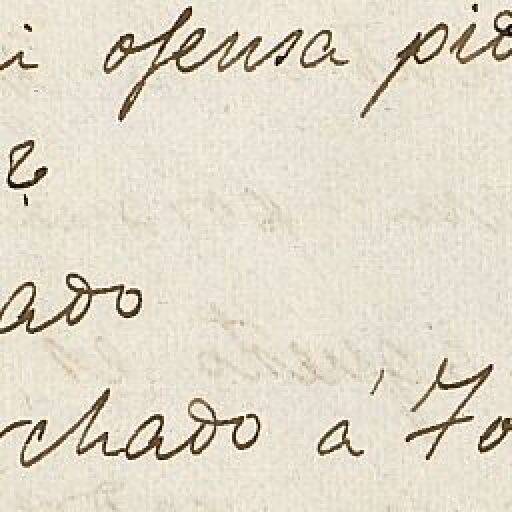 i ofensa pid
?
ado
rchado á To